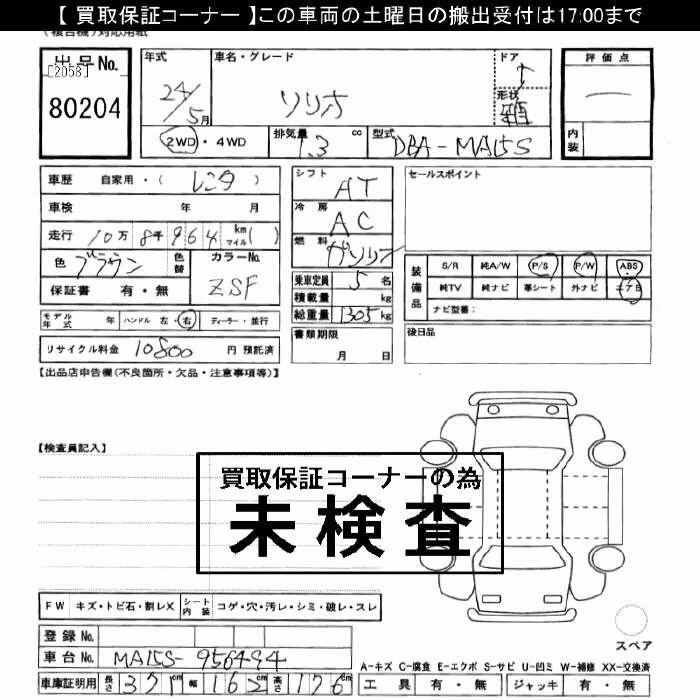 【 買取保証コーナー 】この車両の土曜日の搬出受付は17:00まで
(複合機)対応用紙
出品No.
[2058]
80204
年式
24/5月
車名・グレード
ソリオ
ドア
形状
評価点
内装
2WD・4WD
排気量 1.3 cc
型式 DBA-MA15S
車歴 自家用・( レンタ )
車検 年 月
走行 10万 8千 964 km マイル( )
色 ブラウン 色替
カラーNo. ZSF
保証書 有・無
シフト AT
冷房 AC
燃料 ガソリン
乗車定員 5 名
積載量 kg
総重量 1305 kg
書類期限
月 日
セールスポイント
装備品
S/R 純A/W P/S P/W ABS
純TV 純ナビ 革シート 外ナビ エアB
ナビ型番:
後日品
モデル年式 年 ハンドル 左・右 ディーラー・並行
リサイクル料金 10800 円 預託済
【出品店申告欄(不良箇所・欠品・注意事項等)】
【検査員記入】
買取保証コーナーの為
未検査
FW キズ・トビ石・割レX シート内装 コゲ・穴・汚レ・シミ・破レ・スレ
登録No.
車台No. MA15S-956494
車庫証明用 長さ 37 cm 幅 162 cm 高さ 176 cm
スペア
A-キズ C-腐食 E-エクボ S-サビ U-凹ミ W-補修 XX-交換済
工具 有・無 ジャッキ 有・無